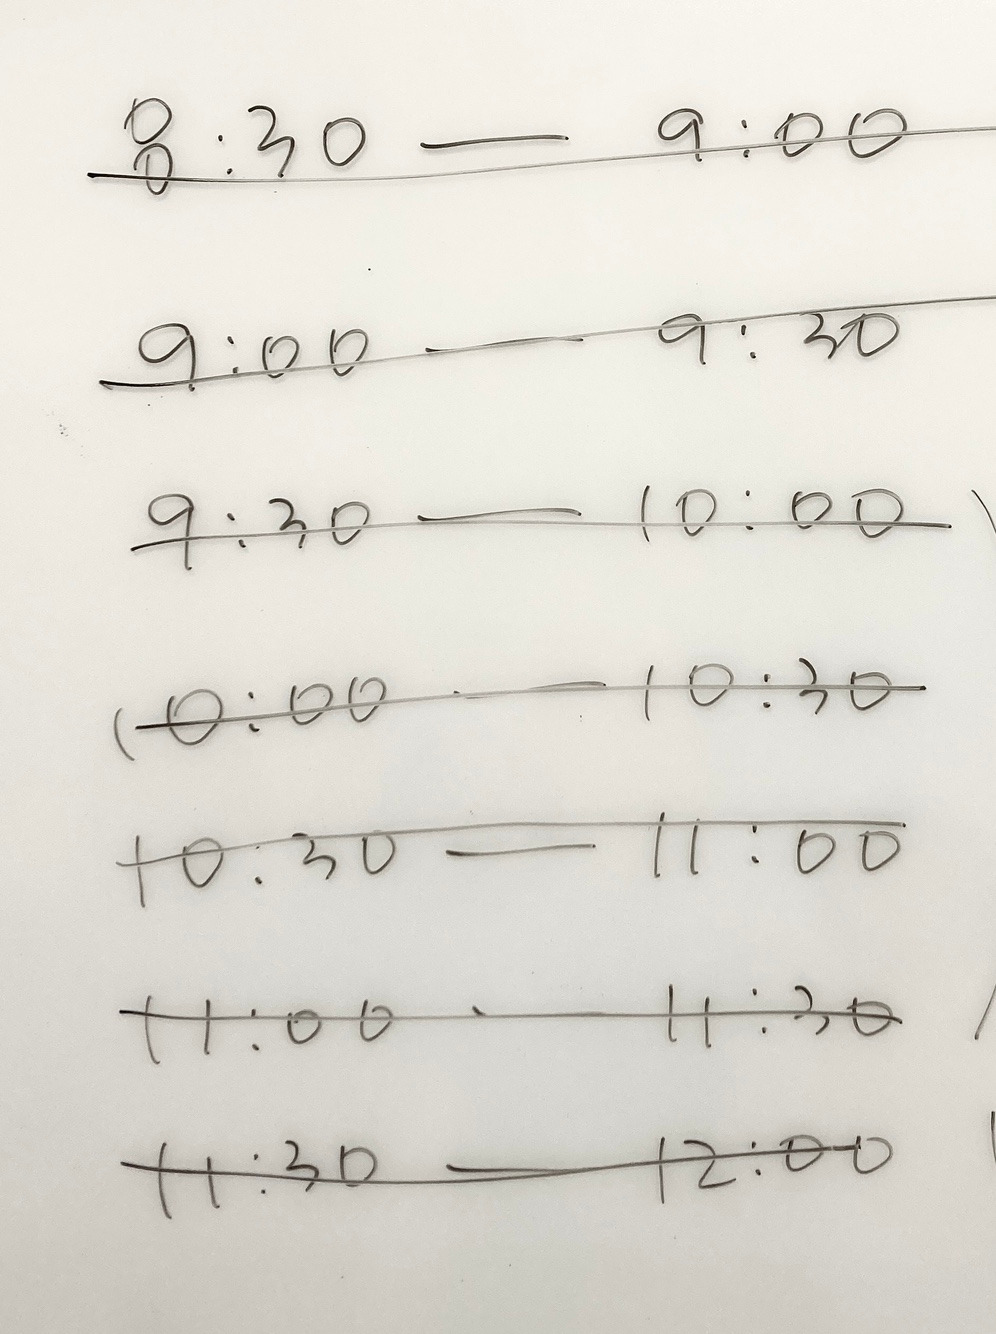 8:30 — 9:00
9:00 — 9:30
9:30 — 10:00
10:00 — 10:30
10:30 — 11:00
11:00 — 11:30
11:30 — 12:00